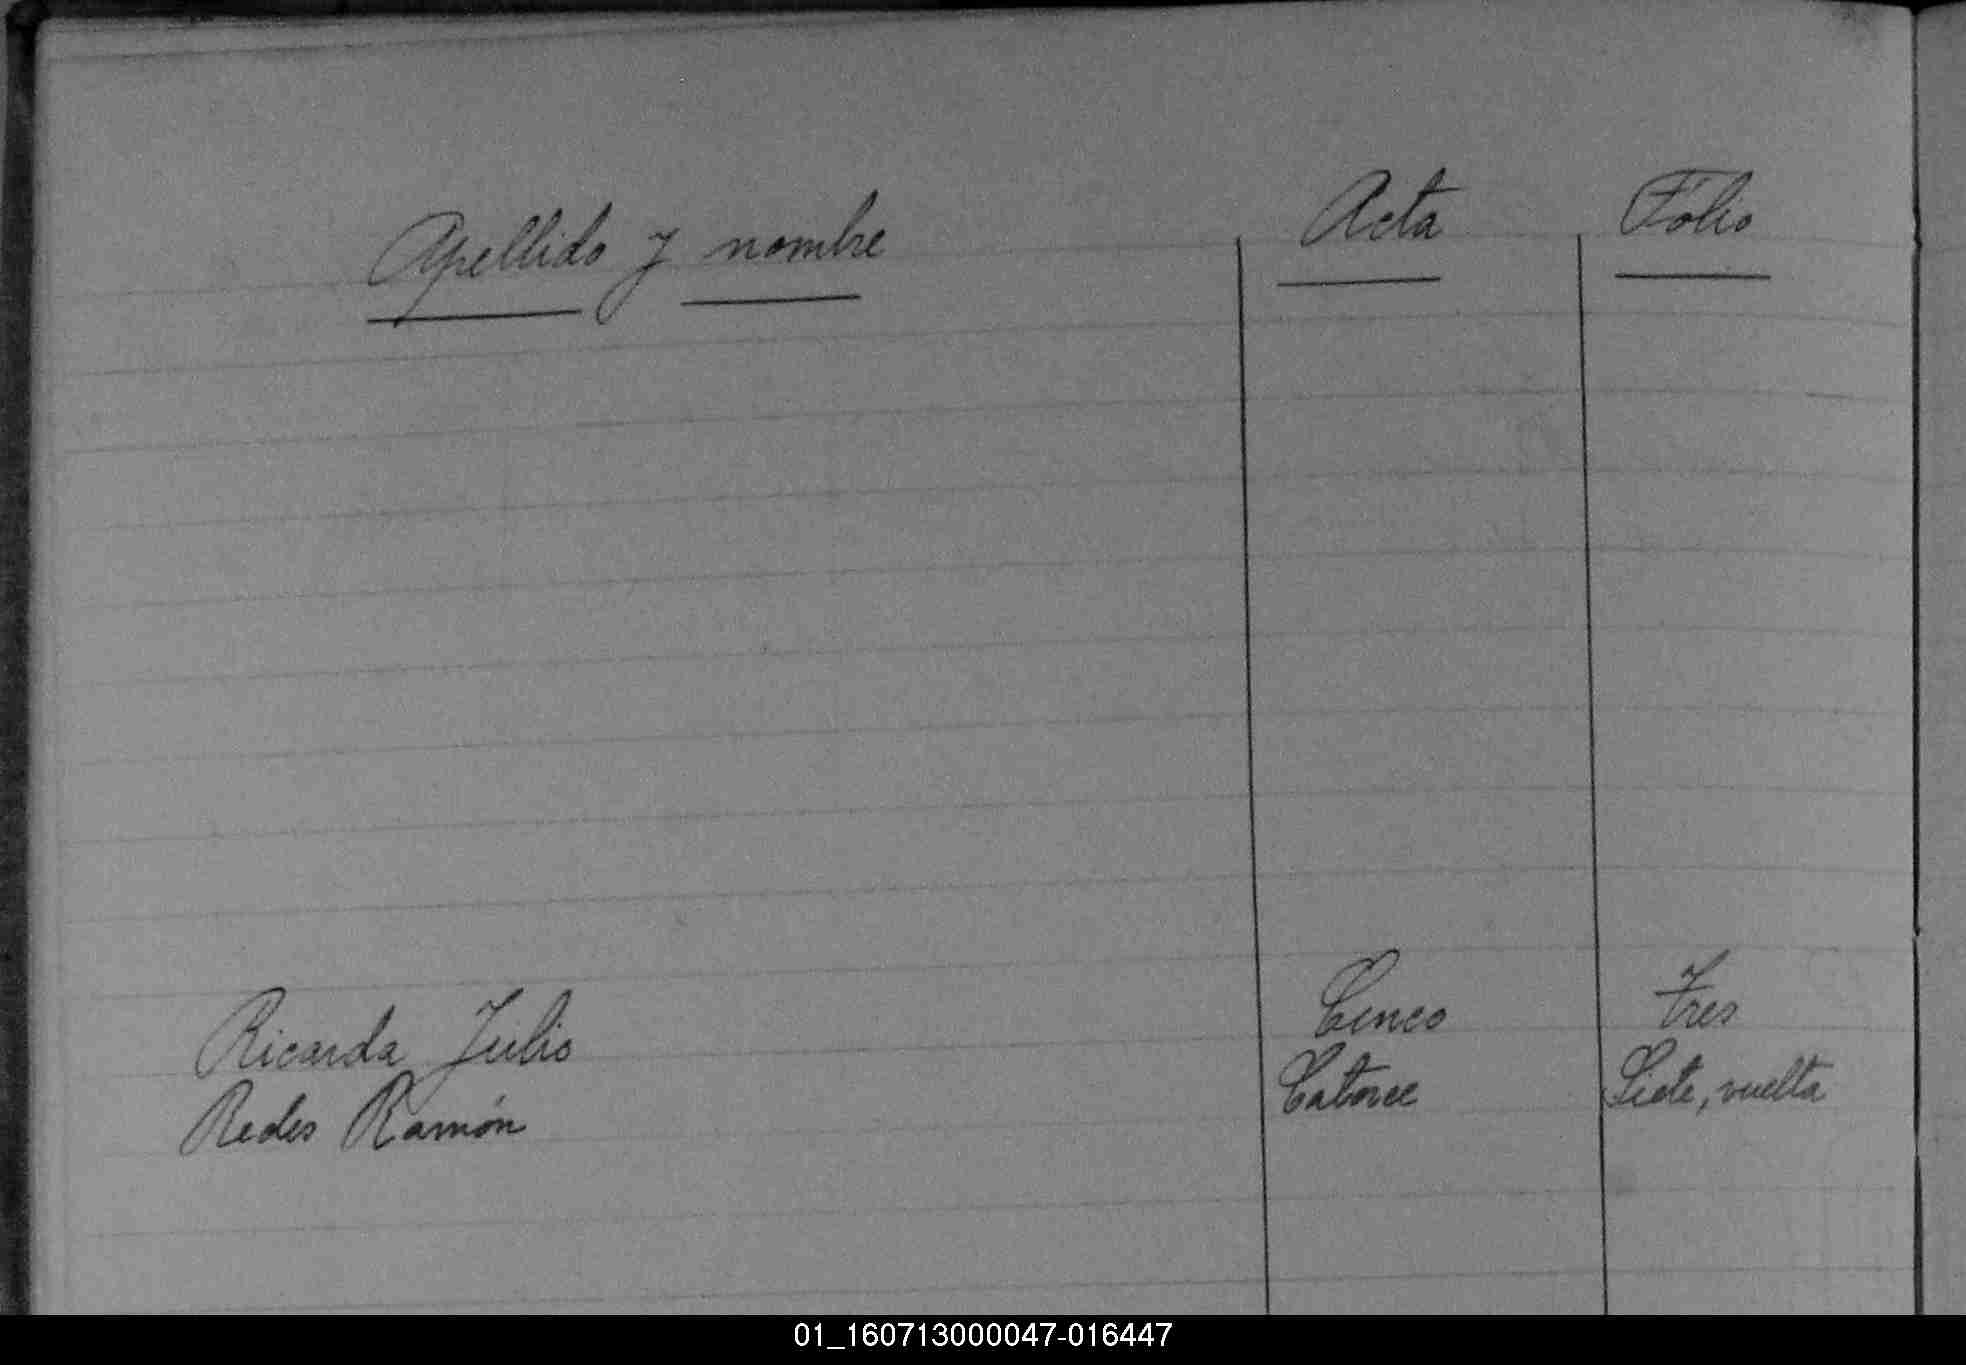 Apellido y nombre Acta Fólio
Ricarda Julio Cinco Tres
Redes Ramón Catorce Siete, vuelta
01_160713000047-016447